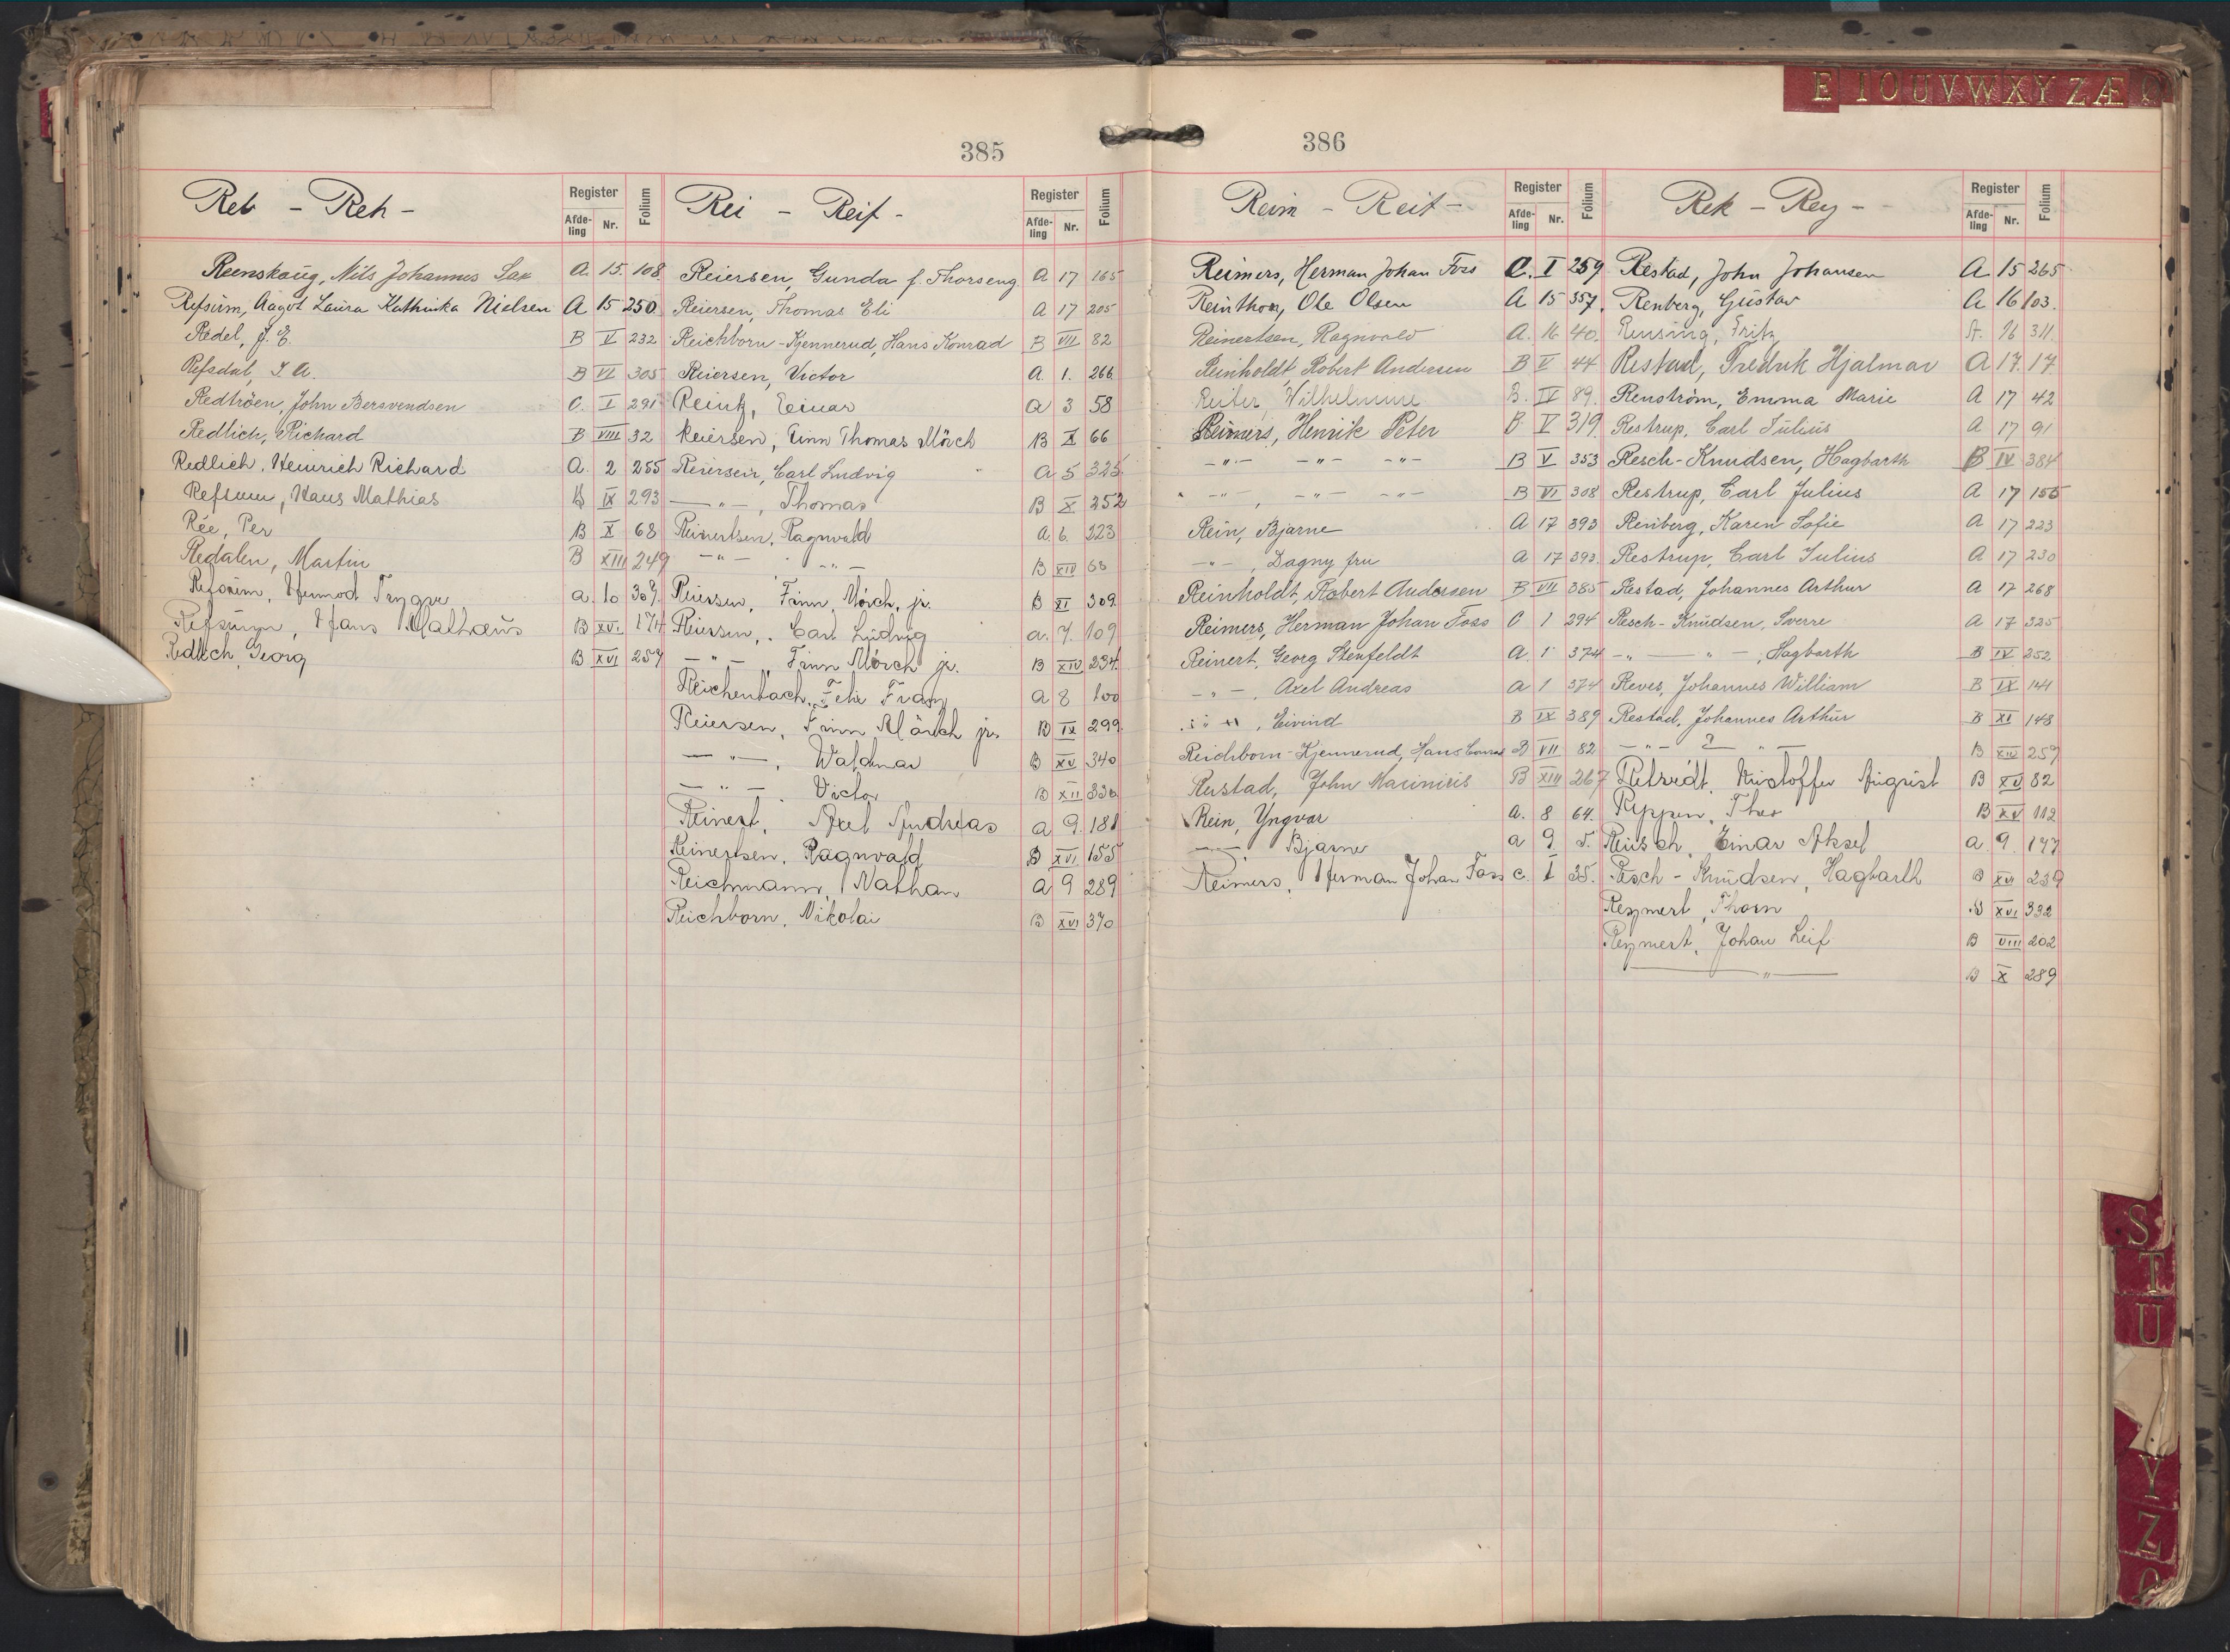 E I O U V W X Y Z Æ
385
Reb - Reh -
Register
Afde-ling Nr. Folium
Reenskaug, Nils Johannes Sax A. 15. 108
Refsum, Aagot Laura Kathinka Nielsen A 15 250
Redel, J. E. B V 232
Refsdal, I. A. B VI 305
Redtröen, John Bersvendsen C. I 291
Redlich, Richard B VIII 32
Redlich, Heinrich Richard A. 2 255
Refsum, Hans Mathias B IX 293
Rée, Per B X 68
Redalen, Martin B XIII 249
Refsum, Hermod Trygve a. 10 309.
Refsum, Hans Mathæus B XVI 174
Redlich, Georg B XVI 257
Rei - Reif -
Register
Afde-ling Nr. Folium
Reiersen, Gunda f. Thorseng A 17 165
Reiersen, Thomas Eli A 17 205
Reichborn-Kjennerud, Hans Konrad B VII 82
Reiersen, Victor A. 1. 266
Reintz, Einar a 3 58
Reiersen, Finn Thomas Mörch B X 66
Reiersen, Carl Ludvig a 5 325
— " —, Thomas B X 252
Reinertsen, Ragnvald a. 6. 223
— " — — " — B XIV 68
Reiersen, Finn Mörch, jr. B XI 309
Reiersen, Carl Ludvig a. 7. 109
— " — Finn Mörch jr. B XIV 234
Reichenbach, Felix Franz a 8 100
Reiersen, Finn Mörch jr. B IX 299
— " —, Waldmar B XV 340
— " —, Victor B XII 330
Reinert, Axel Andreas a 9. 181
Reinertsen, Ragnvald B XVI 155
Reichmann, Nathan a 9 289
Reichborn, Nikolai B XVI 370
386
Reim - Reit -
Register
Afde-ling Nr. Folium
Reimers, Herman Johan Foss C. I 259
Reinthon, Ole Olsen A 15 357.
Reinertsen, Ragnvald A. 16 40.
Reinholdt, Robert Andersen B V 44
Reiter, Wilhelmine B. IV 89.
Reimers, Henrik Peter B V 319
— " — — " — — " — B V 353
— " —, — " — — " — B VI 308
Rein, Bjarne A 17 393
— " —, Dagny fru A 17 393.
Reinholdt, Robert Andersen B VII 385
Reimers, Herman Johan Foss C 1 294
Reinert, Georg Stenfeldt A. 1 374
— " —, Axel Andreas A 1 374
— " —, Eivind B IX 389
Reichborn-Kjennerud, Hans Conrad B VII 82
Reistad, John B XIII 267
Rein, Yngvar a. 8 64.
— " — Bjarne a 9. 5.
Reimers, Herman Johan Foss c. I 35.
Rek - Rey -
Register
Afde-ling Nr. Folium
Restad, John Johansen A 15 265
Renberg, Gustav A 16 103.
Rensing, Fritz A. 16 311.
Restad, Fredrik Hjalmar A 17. 17
Renström, Emma Marie A 17 42
Restrup, Carl Julius A 17 91
Resch-Knudsen, Hagbarth B IV 384
Restrup, Carl Julius A 17 155
Renberg, Karen Sofie A 17 223
Restrup, Carl Julius A 17 230
Restad, Johannes Arthur A 17 268
Resch-Knudsen, Sverre A 17 325
— " — — " —, Hagbarth B IX 252
Reves, Johannes William B IX 141
Restad, Johannes Arthur B XI 148
— " — — " — B XIV 259
Kristoffer August B XV 82
Reppen, Theo B XV 112
Reusch, Einar Aksel a. 9. 177
Resch-Knudsen, Hagbarth B XVI 239
Reymert, Thorn B XVI 332
Reymert, Johan Leif B VIII 202
— " — B X 289
S
T
U
Y
Z